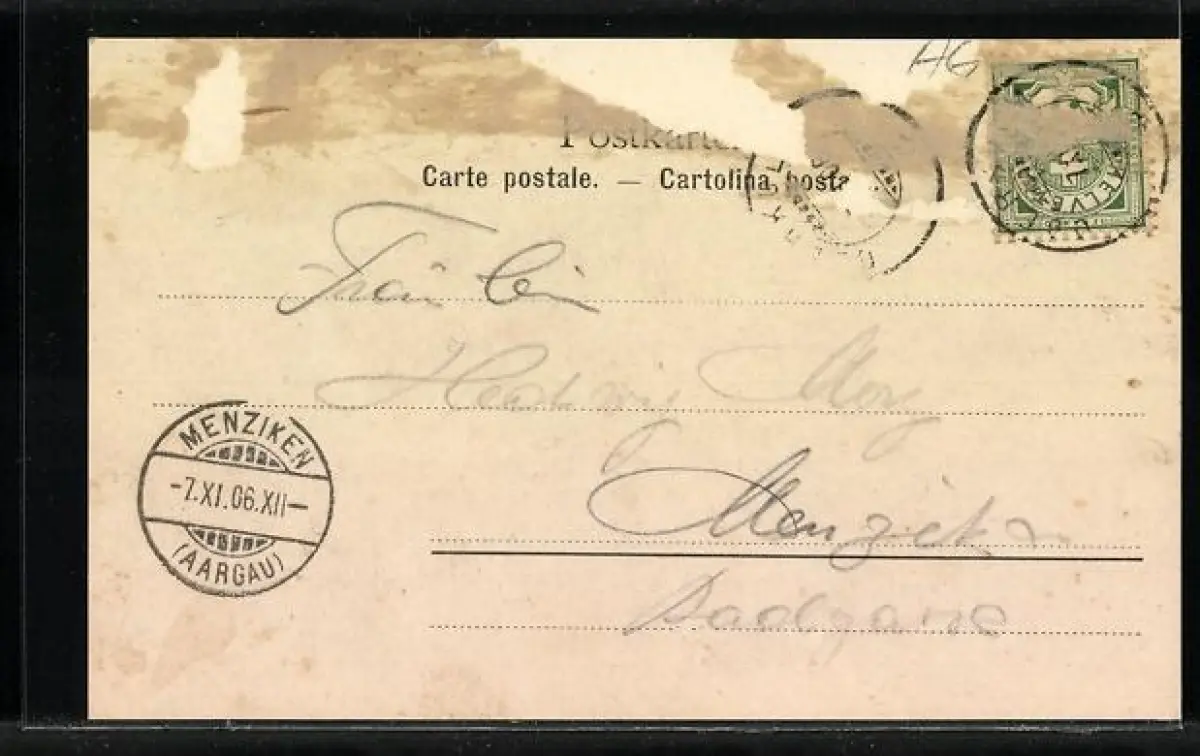 AG
Postkarte
Carte postale. — Cartolina posta
HELVETIA
Fräulein
Hedwig
Menziken
MENZIKEN
-7.XI.06.XII-
(AARGAU)